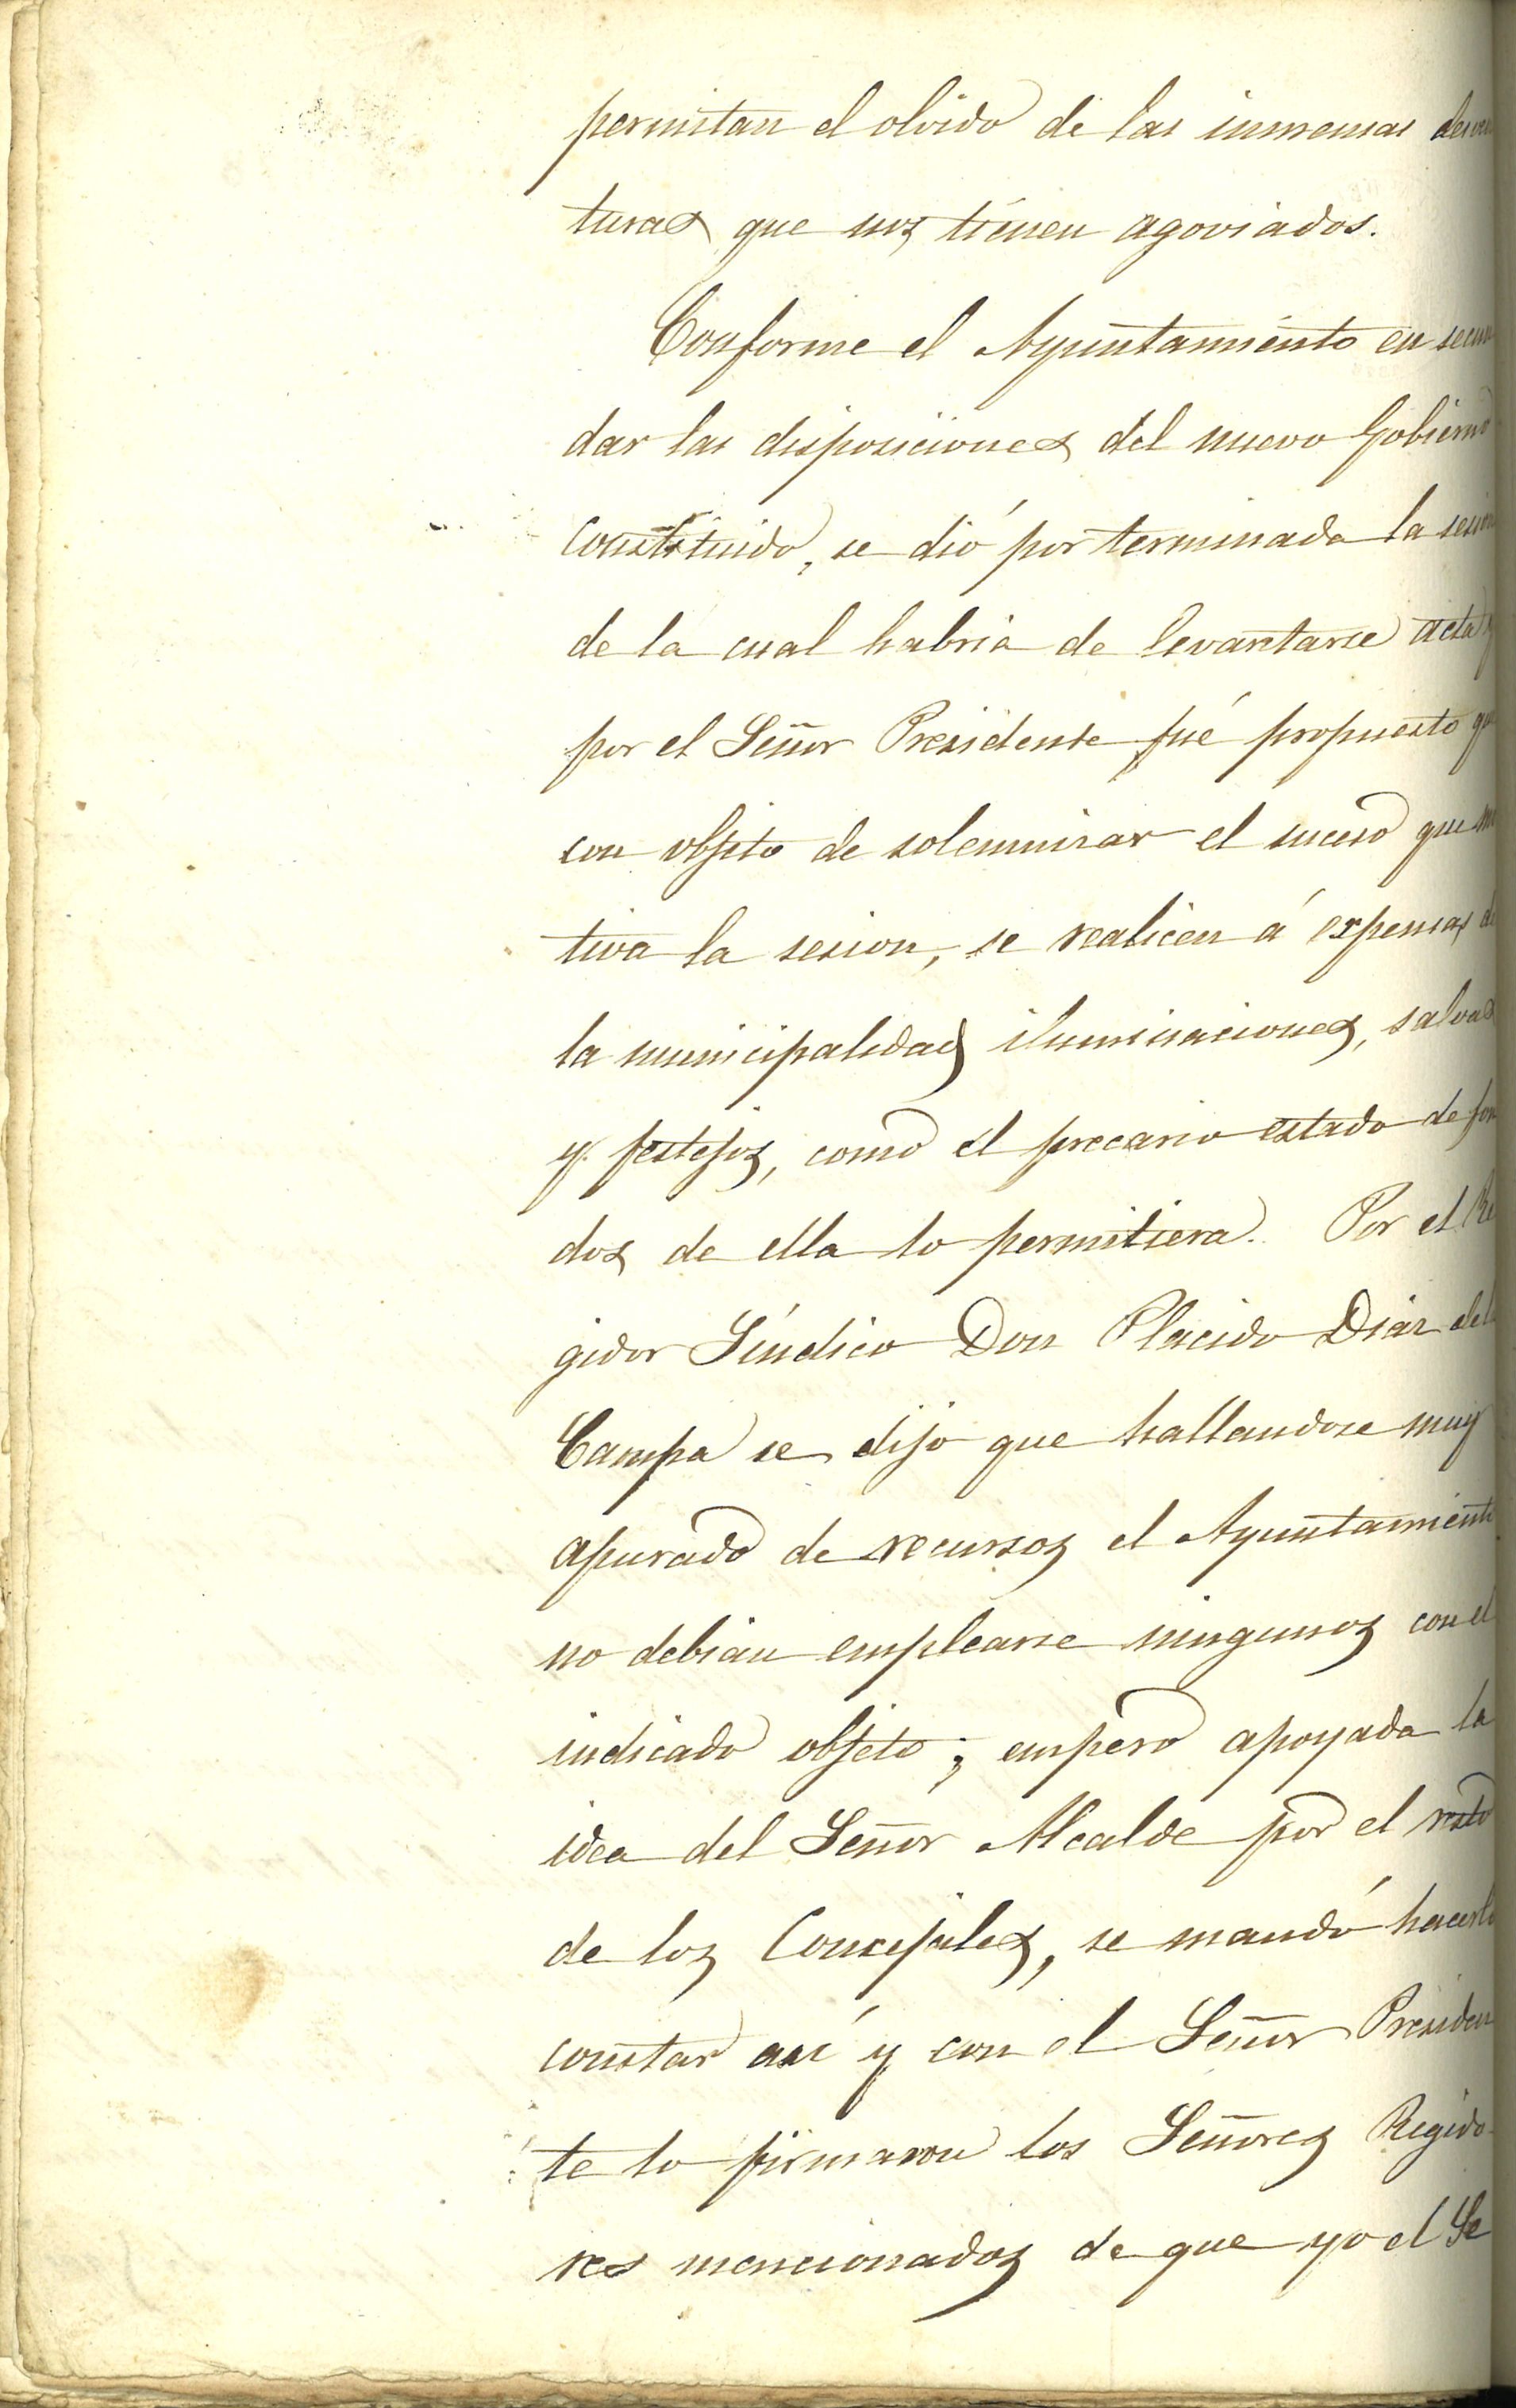 permitan el olvido de las inmensas desven
turas que nos tienen agoviados.
Conforme el Ayuntamiento en secun
dar las disposiciones del nuevo Gobierno
constituido, se dió por terminada la sesion
de la cual habria de levantarse acta y
por el Señor Presidente fué propuesto que
con objeto de solemnizar el suceso que mo
tiva la sesion, se realicen á expensas de
la municipalidad iluminaciones, salvas
y festejos, como el precario estado de fon
dos de ella lo permitiera. Por el Re
gidor Síndico Don Placido Diaz de la
Campa se dijo que hallandose muy
apurado de recursos el Ayuntamiento
no debian emplearse ningunos con el
indicado objeto; empero apoyada la
idea del Señor Alcalde por el resto
de los Concejales, se mandó hacerlo
constar asi y con el Señor Presiden
te lo firmaron los Señores Regido-
res mencionados de que yo el Se